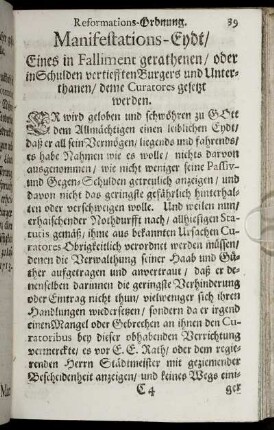 Reformations-Ordnung. 39
Manifestations-Eydt/
Eines in Falliment gerathenen/ oder
in Schulden vertiefften Burgers und Unter-
thanen/ deme Curatores gesetzt
werden.
ER wird geloben und schwöhren zu GOtt
dem Allmächtigen einen leiblichen Eydt/
daß er all sein Vermögen/ liegends und fahrends/
es habe Nahmen wie es wolle/ nichts darvon
ausgenommen/ wie nicht weniger seine Passiv-
und Gegen-Schulden getreulich anzeigen/ und
davon nicht das geringste gefährlich hinterhal-
ten oder verschweigen wolle. Und weilen nun/
erhaischender Nochdurfft nach/ allhiesigen Sta-
tutis gemäß/ ihme aus bekannten Ursachen Cu-
ratores Obrigkeitlich verordnet werden müssen/
denen die Verwaltung seiner Haab und Gü-
ther aufgetragen und anvertraut/ daß er de-
nenselben darinnen die geringste Verhinderung
oder Eintrag nicht thun/ vielweniger sich ihren
Handlungen wiedersetzen/ sondern da er irgend
einen Mangel oder Gebrechen an ihnen den Cu-
ratoribus bey dieser obhabenden Verrichtung
vermerckte/ es vor E. E. Rath/ oder dem regie-
renden Herrn Städtmeister mit geziemender
Bescheidenheit anzeigen/ und keines Wegs eini-
C 4 ger